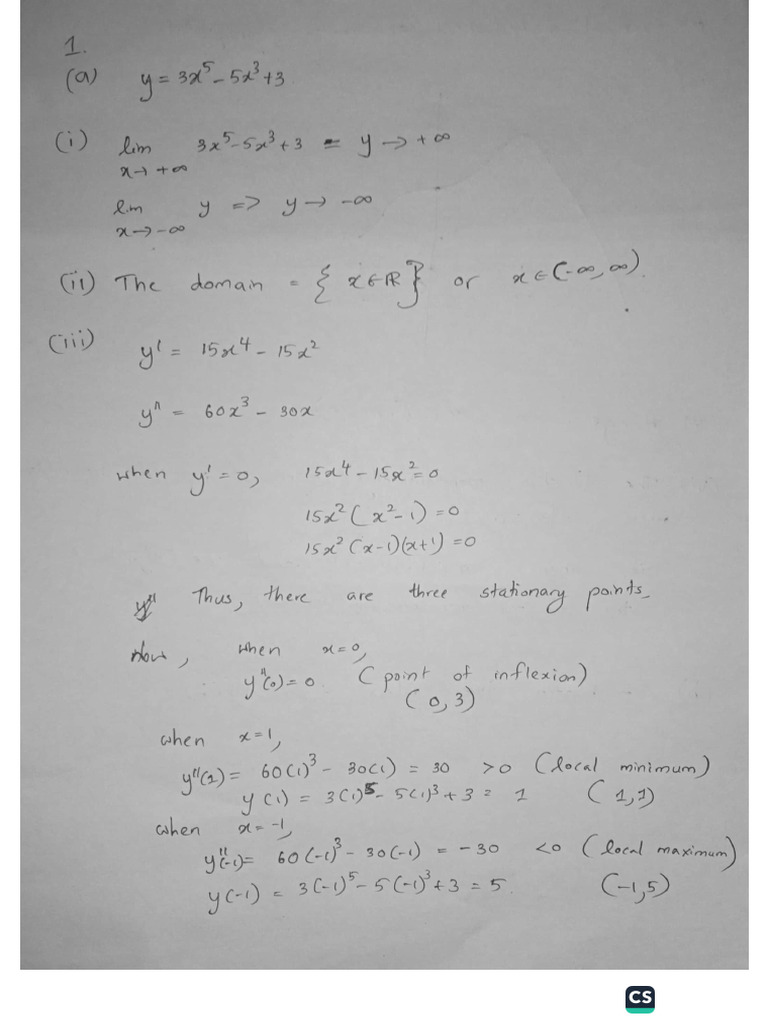 1.
(a) y = 3x⁵ - 5x³ + 3
(i) lim 3x⁵ - 5x³ + 3 = y → +∞
x → +∞
lim y => y → -∞
x → -∞
(ii) The domain = { x ∈ ℝ } or x ∈ (-∞, ∞).
(iii) y' = 15x⁴ - 15x²
y" = 60x³ - 30x
when y' = 0, 15x⁴ - 15x² = 0
15x² (x² - 1) = 0
15x² (x-1)(x+1) = 0
Thus, there are three stationary points.
Now, when x = 0,
y"(0) = 0 (point of inflexion)
(0, 3)
when x = 1,
y"(1) = 60(1)³ - 30(1) = 30 > 0 (local minimum)
y(1) = 3(1)⁵ - 5(1)³ + 3 = 1 (1, 1)
when x = -1,
y"(-1) = 60(-1)³ - 30(-1) = -30 < 0 (local maximum)
y(-1) = 3(-1)⁵ - 5(-1)³ + 3 = 5. (-1, 5)
CS